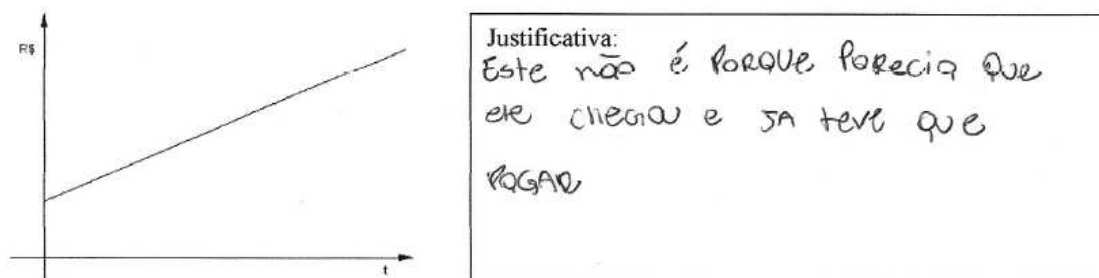 R$
t
Justificativa:
Este não é PORQUE PARECIA QUE
ele CHEGOU e JA teve que
PAGAR